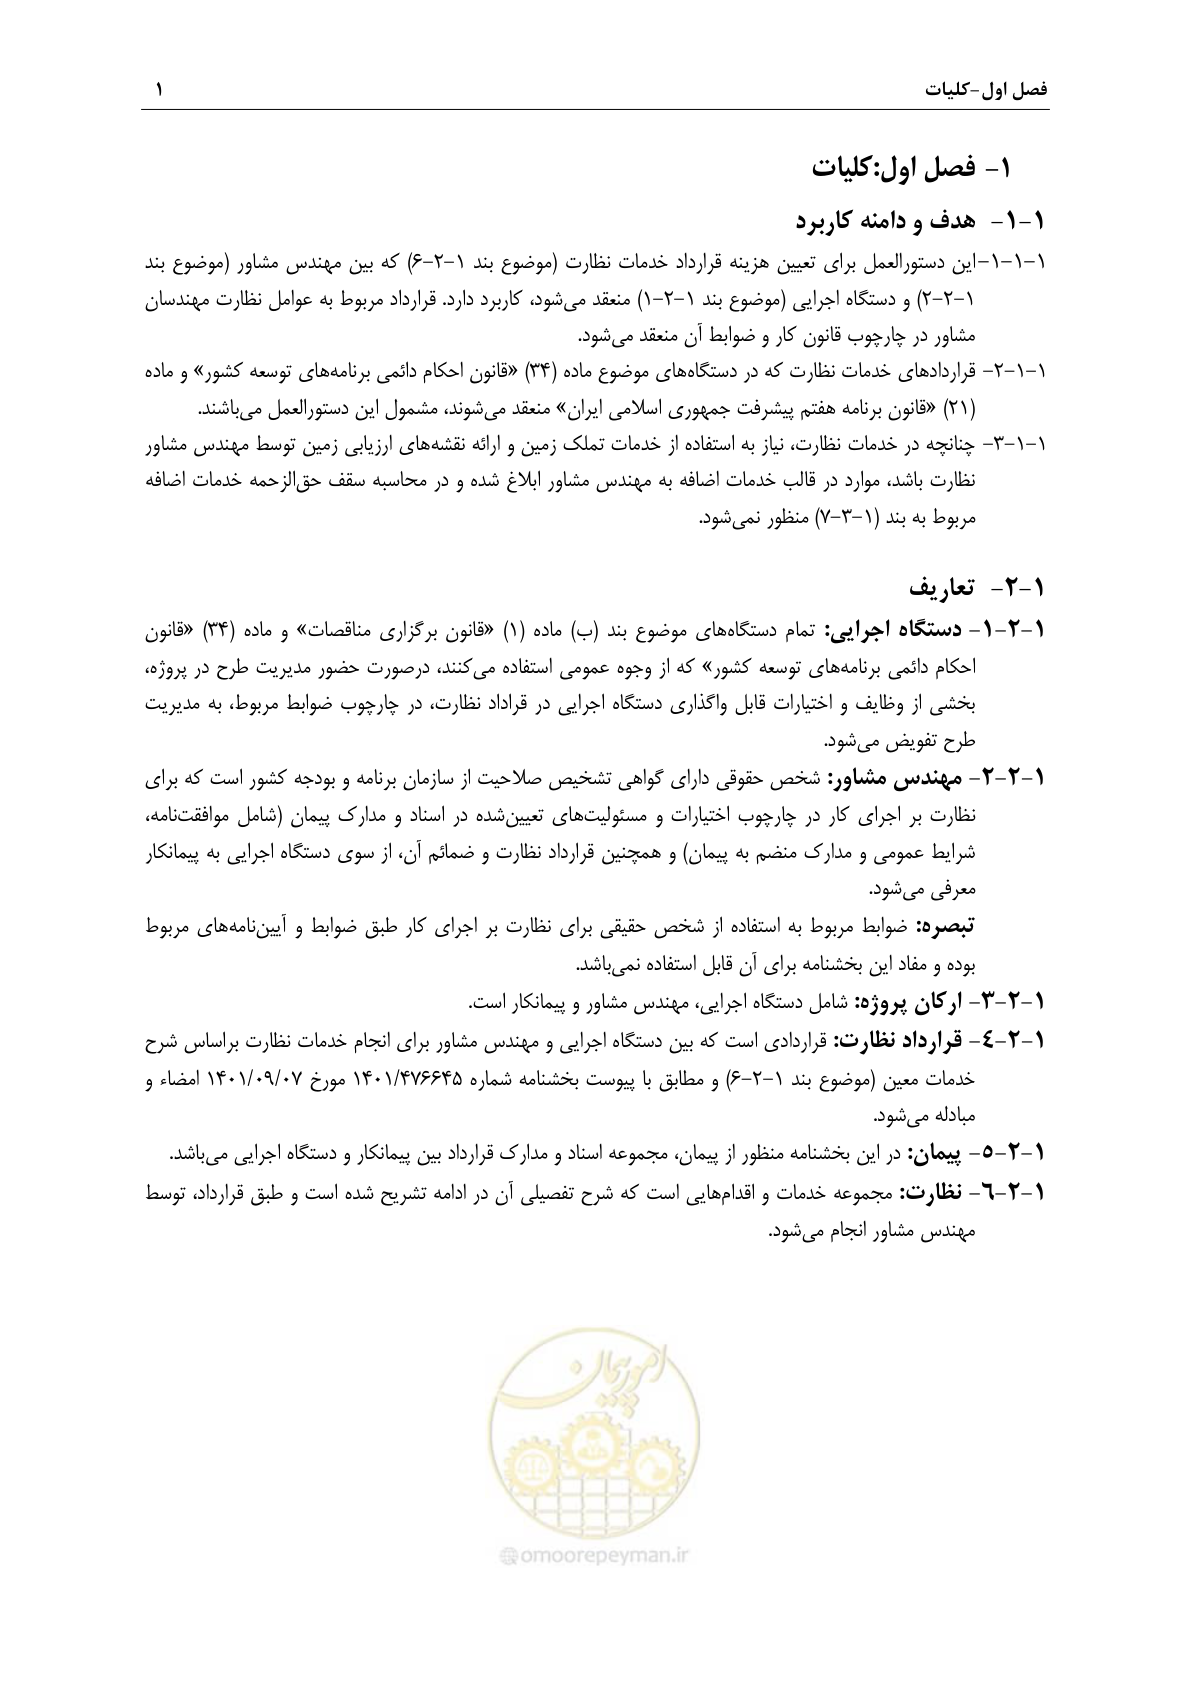 فصل اول-کلیات ۱
۱- فصل اول:کلیات
۱-۱- هدف و دامنه کاربرد
۱-۱-۱-این دستورالعمل برای تعیین هزینه قرارداد خدمات نظارت (موضوع بند ۱-۲-۶) که بین مهندس مشاور (موضوع بند
۱-۲-۲) و دستگاه اجرایی (موضوع بند ۱-۲-۱) منعقد می‌شود، کاربرد دارد. قرارداد مربوط به عوامل نظارت مهندسان
مشاور در چارچوب قانون کار و ضوابط آن منعقد می‌شود.
۱-۱-۲- قراردادهای خدمات نظارت که در دستگاه‌های موضوع ماده (۳۴) «قانون احکام دائمی برنامه‌های توسعه کشور» و ماده
(۲۱) «قانون برنامه هفتم پیشرفت جمهوری اسلامی ایران» منعقد می‌شوند، مشمول این دستورالعمل می‌باشند.
۱-۱-۳- چنانچه در خدمات نظارت، نیاز به استفاده از خدمات تملک زمین و ارائه نقشه‌های ارزیابی زمین توسط مهندس مشاور
نظارت باشد، موارد در قالب خدمات اضافه به مهندس مشاور ابلاغ شده و در محاسبه سقف حق‌الزحمه خدمات اضافه
مربوط به بند (۱-۳-۷) منظور نمی‌شود.
۱-۲- تعاریف
۱-۲-۱- دستگاه اجرایی: تمام دستگاه‌های موضوع بند (ب) ماده (۱) «قانون برگزاری مناقصات» و ماده (۳۴) «قانون
احکام دائمی برنامه‌های توسعه کشور» که از وجوه عمومی استفاده می‌کنند، درصورت حضور مدیریت طرح در پروژه،
بخشی از وظایف و اختیارات قابل واگذاری دستگاه اجرایی در قراداد نظارت، در چارچوب ضوابط مربوط، به مدیریت
طرح تفویض می‌شود.
۱-۲-۲- مهندس مشاور: شخص حقوقی دارای گواهی تشخیص صلاحیت از سازمان برنامه و بودجه کشور است که برای
نظارت بر اجرای کار در چارچوب اختیارات و مسئولیت‌های تعیین‌شده در اسناد و مدارک پیمان (شامل موافقت‌نامه،
شرایط عمومی و مدارک منضم به پیمان) و همچنین قرارداد نظارت و ضمائم آن، از سوی دستگاه اجرایی به پیمانکار
معرفی می‌شود.
تبصره: ضوابط مربوط به استفاده از شخص حقیقی برای نظارت بر اجرای کار طبق ضوابط و آیین‌نامه‌های مربوط
بوده و مفاد این بخشنامه برای آن قابل استفاده نمی‌باشد.
۱-۲-۳- ارکان پروژه: شامل دستگاه اجرایی، مهندس مشاور و پیمانکار است.
۱-۲-٤- قرارداد نظارت: قراردادی است که بین دستگاه اجرایی و مهندس مشاور برای انجام خدمات نظارت براساس شرح
خدمات معین (موضوع بند ۱-۲-۶) و مطابق با پیوست بخشنامه شماره ۱۴۰۱/۴۷۶۶۴۵ مورخ ۱۴۰۱/۰۹/۰۷ امضاء و
مبادله می‌شود.
۱-۲-۵- پیمان: در این بخشنامه منظور از پیمان، مجموعه اسناد و مدارک قرارداد بین پیمانکار و دستگاه اجرایی می‌باشد.
۱-۲-٦- نظارت: مجموعه خدمات و اقدام‌هایی است که شرح تفصیلی آن در ادامه تشریح شده است و طبق قرارداد، توسط
مهندس مشاور انجام می‌شود.
امور پیمان
@omoorepeyman.ir